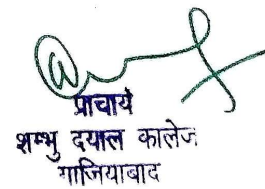 प्राचार्य
शम्भु दयाल कालेज
गाजियाबाद